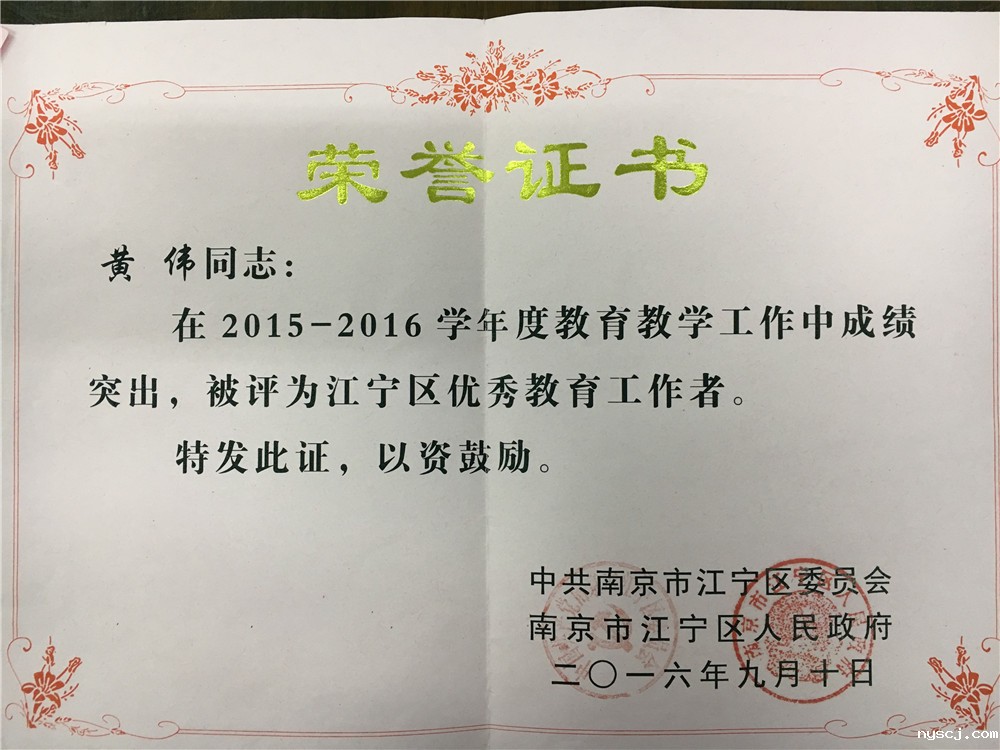 荣誉证书
黄 伟同志：
在 2015-2016 学年度教育教学工作中成绩
突出，被评为江宁区优秀教育工作者。
特发此证，以资鼓励。
中共南京市江宁区委员会
南京市江宁区人民政府
二〇一六年九月十日
nyscj.com